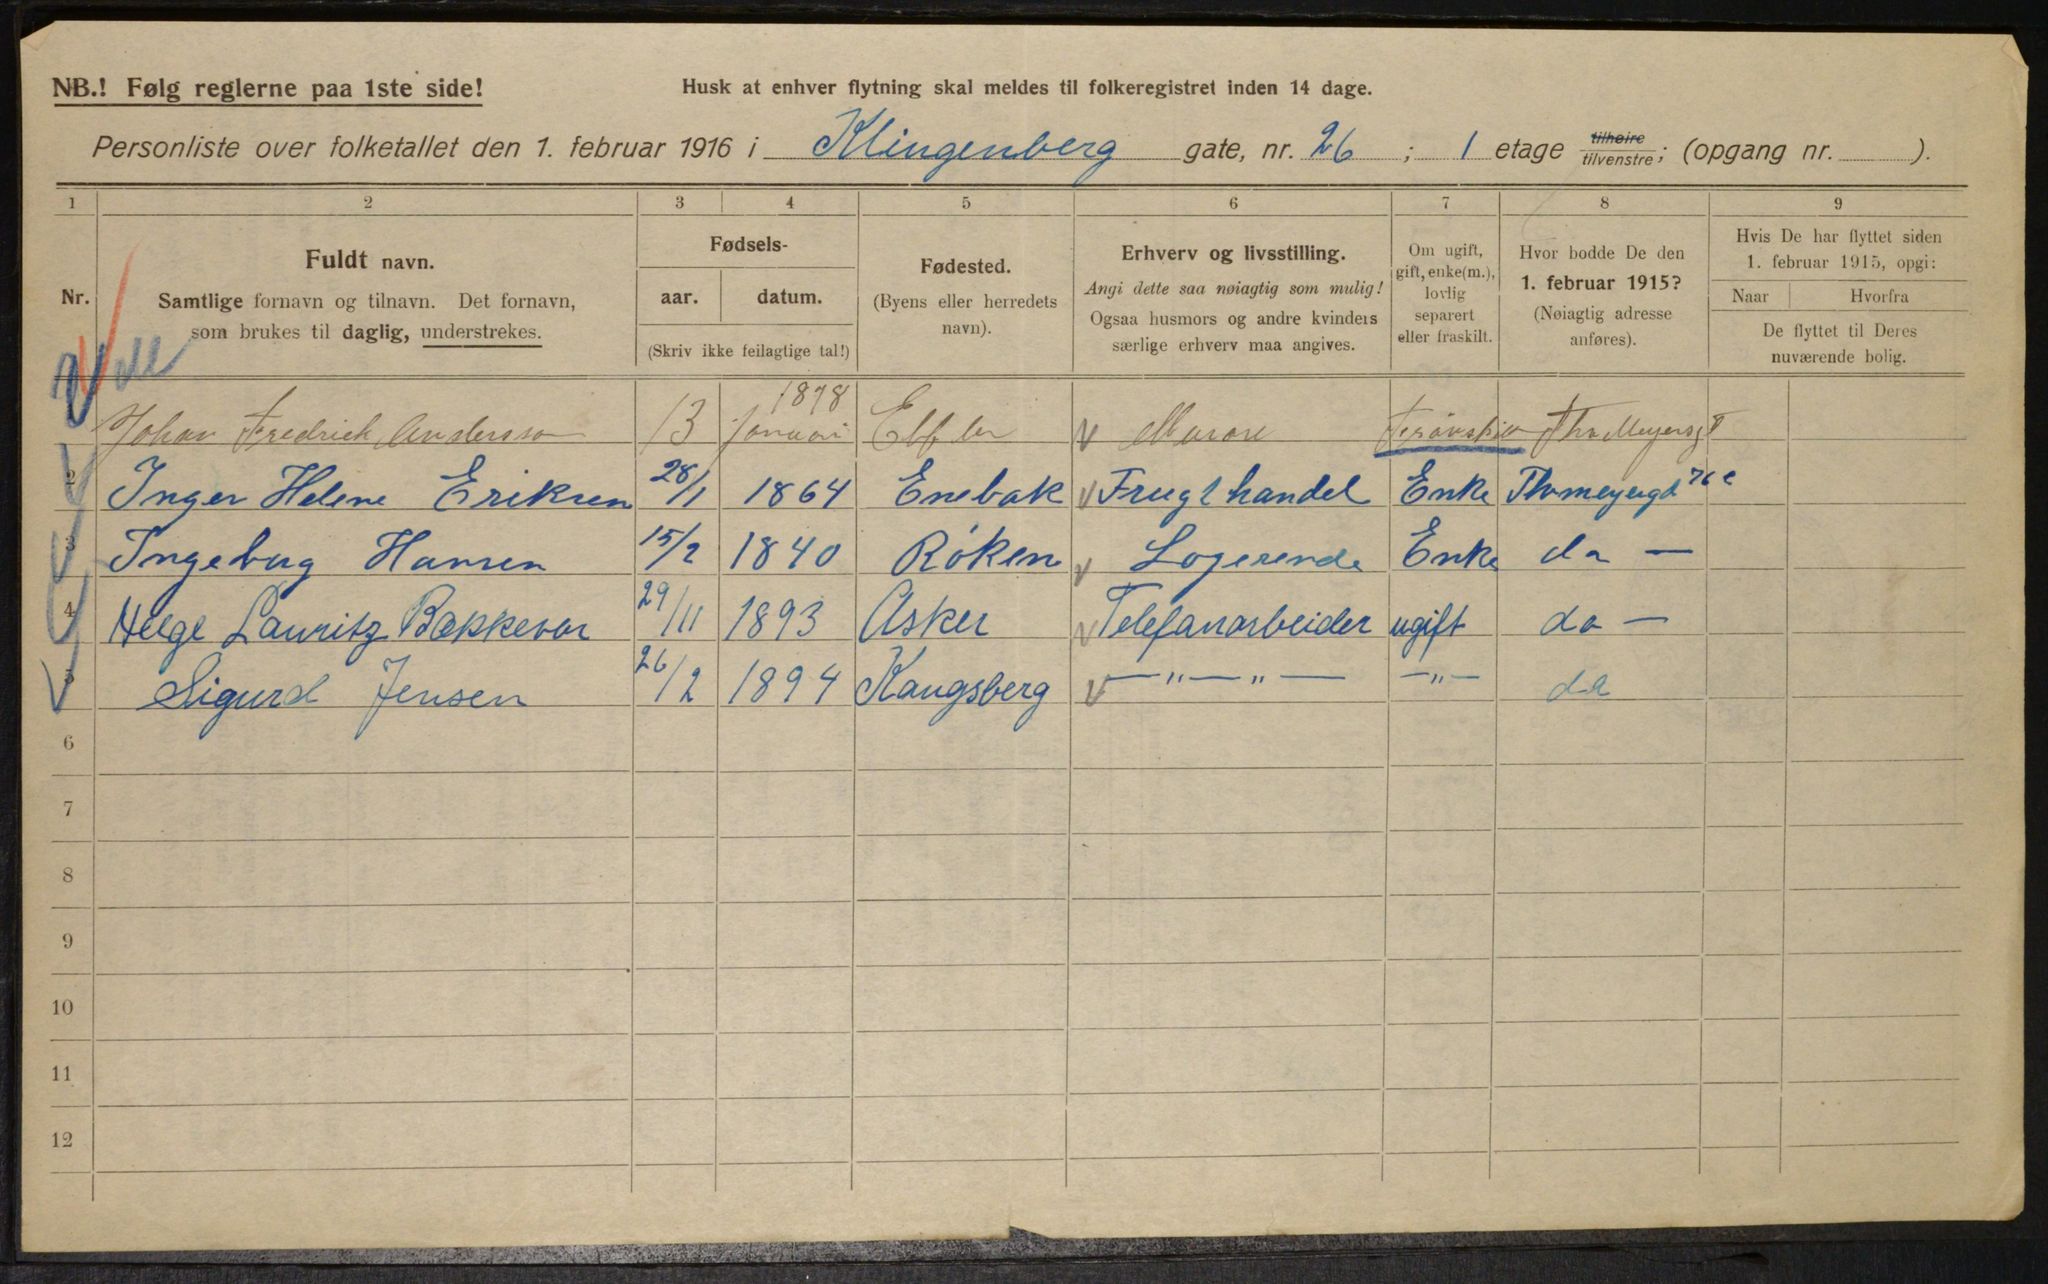 NB.! Følg reglerne paa 1ste side!
Husk at enhver flytning skal meldes til folkeregistret inden 14 dage.
Personliste over folketallet den 1. februar 1916 i Klingenberg gate, nr. 26 ; 1 etage tilhøire tilvenstre; (opgang nr. ).
1 2 3 4 5 6 7 8 9
Nr.
Fuldt navn.
Samtlige fornavn og tilnavn. Det fornavn,
som brukes til daglig, understrekes.
Fødsels-
aar. datum.
(Skriv ikke feilagtige tal!)
Fødested.
(Byens eller herredets
navn).
Erhverv og livsstilling.
Angi dette saa nøiagtig som mulig!
Ogsaa husmors og andre kvinders
særlige erhverv maa angives.
Om ugift,
gift, enke(m.),
lovlig
separert
eller fraskilt.
Hvor bodde De den
1. februar 1915?
(Nøiagtig adresse
anføres).
Hvis De har flyttet siden
1. februar 1915, opgi:
Naar Hvorfra
De flyttet til Deres
nuværende bolig.
Johan Fredrick Andersson 13 Januari 1878 Murare
2 Inger Helene Eriksen 28/1 1864 Enebak Frugthandel Enke Thvmeyergd 76 c
3 Ingebug Hansen 15/2 1840 Røken Logerende Enke do —
4 Helge Lauritz Bækkevar 29/11 1893 Asker Telefonarbeider ugift do —
5 Sigurd Jensen 26/2 1894 Kongsberg — " — " — — " — do
6
7
8
9
10
11
12